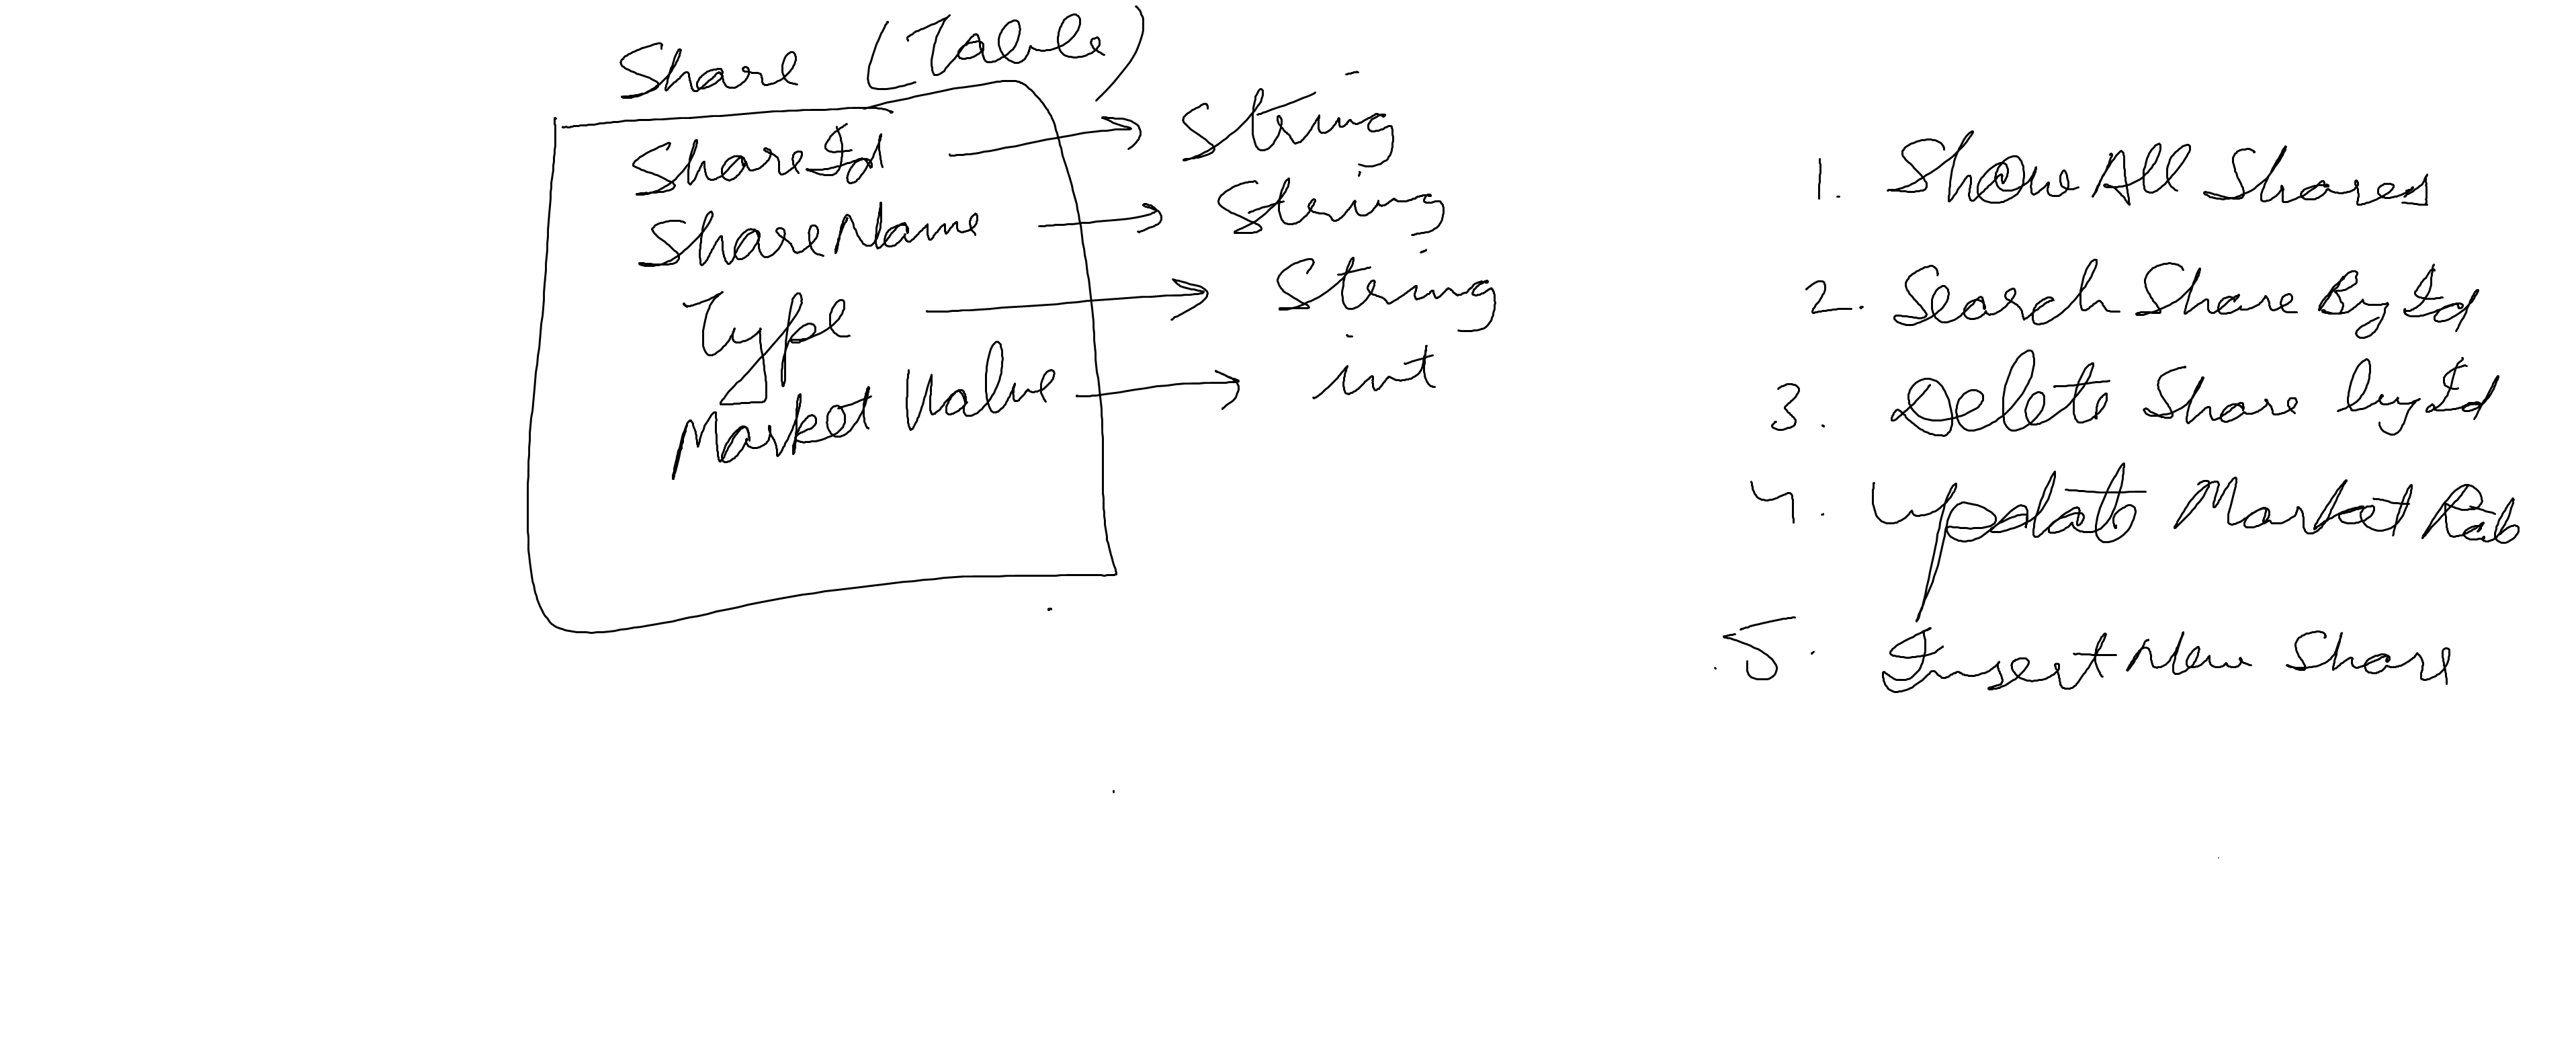 Share (Table)
ShareId → String
ShareName → String
Type → String
Market Value → int
1. Show All Shares
2. Search Share By Id
3. Delete Share by Id
4. Update Market Rate
5. Insert New Share